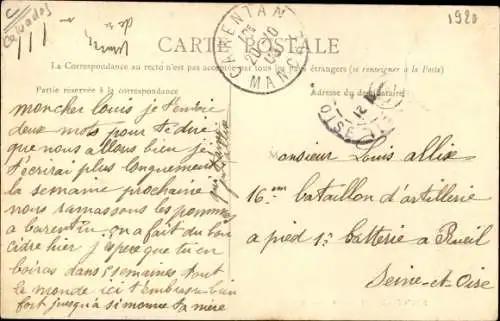 Calvados
1920
CARTE POSTALE
La Correspondance au recto n'est pas acceptée par tous les pays étrangers (se renseigner à la Poste)
Partie réservée à la correspondance
Adresse du destinataire
CARENTAN
20-10
MANCHE
moncher louis je t'envoie
deux mots pour te dire
que nous allons bien je
t'ecrirai plus longuement
la semaine prochaine
nous ramassons les pommes
a carentin on a fait du bon
cidre hier j espere que tu en
boiras dans 5 semaines tout
le monde ici t'embrasse bien
fort jusqu'a simonne ta mère
Monsieur Louis allix
16em bataillon d'artillerie
a pied 1e batterie a Rueil
Seine-et Oise